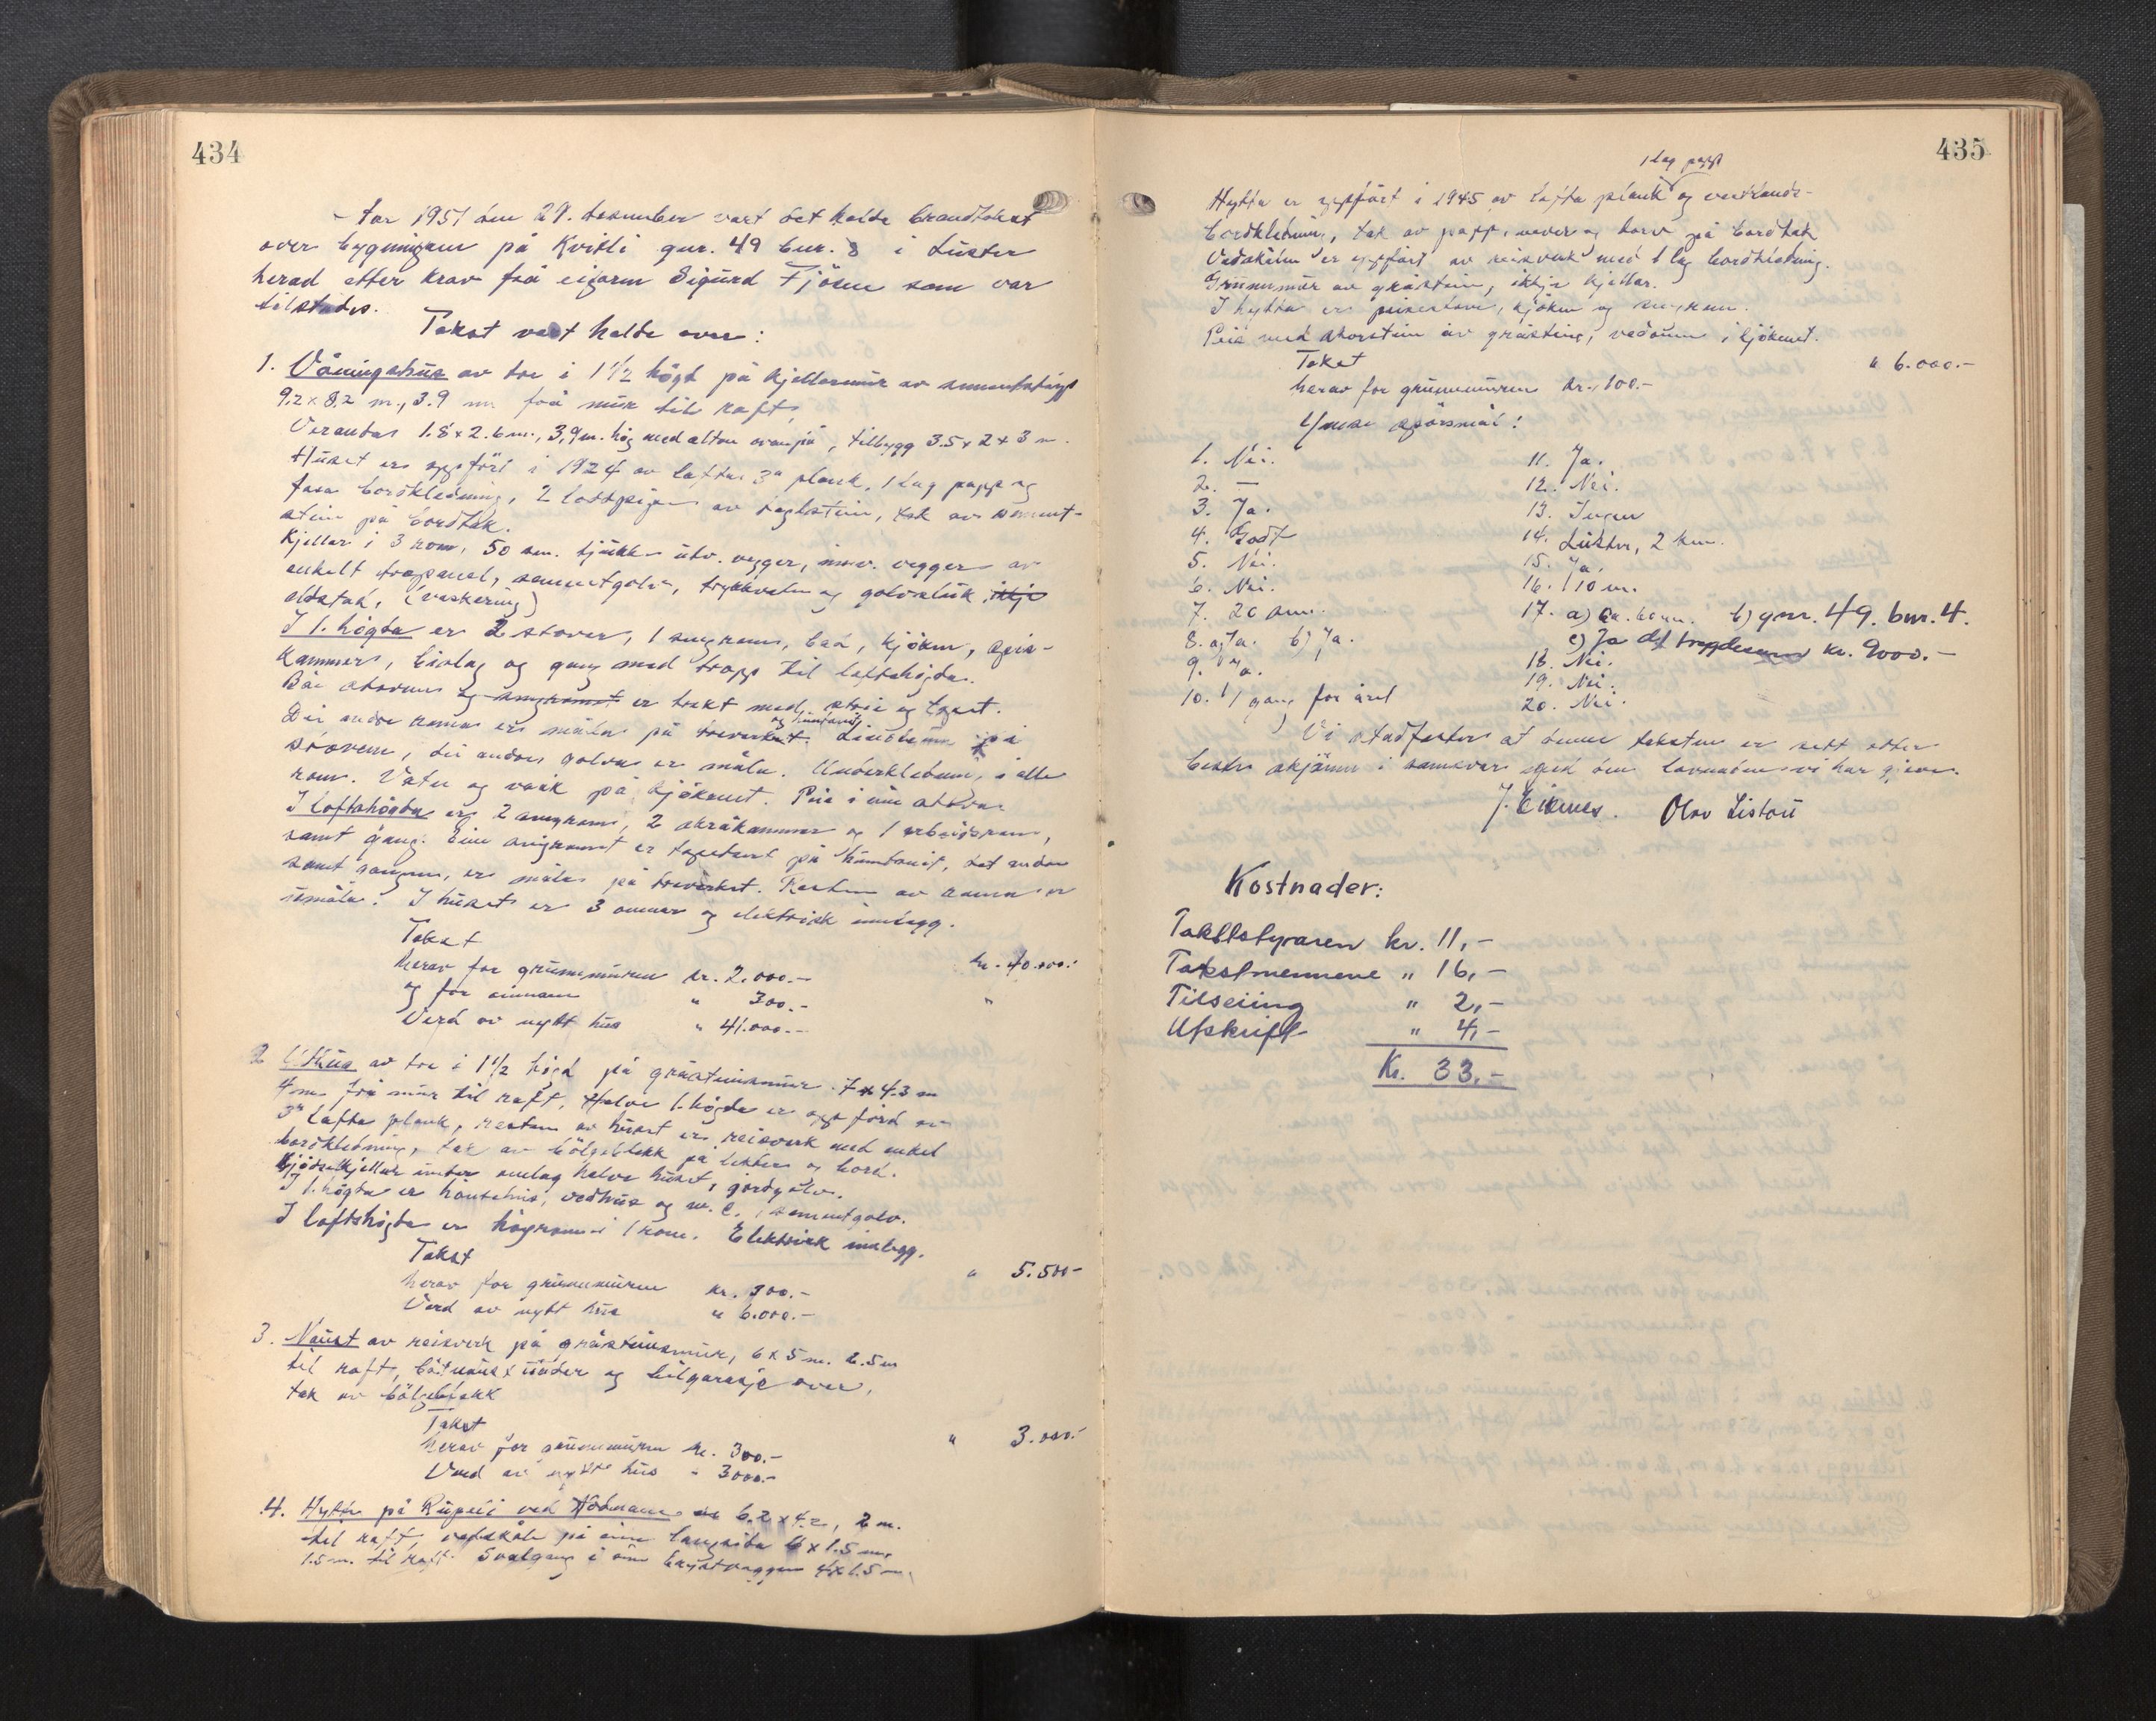 434
År 1951 den 29. desember vart det halde brandtakst
over bygningane på Kvitli gnr. 49 bnr. 8 i Luster
herad etter krav frå eigaren Sigurd Fjösne som var
tilstades.
Takst vart halde over:
1. Våningshus av tre i 1 1/2 högd på kjellarmur av sementstøyp
9.2 x 8.2 m., 3.9 m frå mur til raft,
Verandas 1.8 x 2.6 m., 3,9 m. høg med altan ovanpå, tilbygg 3.5 x 2 x 3 m.
Huset er oppfört i 1924 av lafta 3" plank, 1 lag papp og
fasa bordkledning, 2 loddpipor av teglstein, tak av sement-
stein på bordtak.
Kjellar i 3 rom, 50 cm. tjukke utv. vegger, innv. vegger av
enkelt trepanel, sementgolv, trykkvatn og golvsluk, ikkje
eldstad, (vaskering)
I 1. högda er 2 stover, 1 sengrom, bad, kjöken, spis-
kammers, bislag og gang med tropp til loftshögda.
Båe stovene og sengromet er trekt med strie og tapet.
Dei andre romma er måla på treverket og huntonit. Linoleum på
stovene, dei andre golva er måla. Underkledning i alle
rom. Vatn og vask på kjökenet. Peis i ein stova
I loftshögda er 2 sengrom, 2 skråkammer og 1 arbeidsrom,
samt gang. Eine sengromet er tapetsert på huntonit, det andre
samt gangen, er måla på treverket. Resten av romma er
umåla. I huset er 3 omnar og elektrisk innlegg.
Takst kr. 40.000.-
herav for grunnmuren kr. 2.000.-
og for omnane " 300.- "
Verd av nytt hus " 41.000.-
2 Uthus av tre i 1 1/2 högd på gråsteinsmur. 7 x 4.3 m
4 m frå mur til raft. Halve 1. högda er oppförd av
3" lafta plank, resten av huset er reisverk med enkel
bordkledning, tak av bölgeblekk på lekter og bord.
Gjödselkjellar under omlag halve huset, jordgolv.
I 1. högda er hönsehus, vedhus og w.c., sementgolv.
I loftshögda er höyrom i 1 rom. Elektrisk innlegg.
Takst " 5.500-
herav for grunnmuren kr. 300.-
Verd av nytt hus " 6.000.-
3. Naust av reisverk på gråsteinsmur, 6 x 5 m. 2.5 m
til raft, båtnaust under og bilgarasje over,
tak av bölgeblekk
Takst " 3.000.-
herav for grunnmuren kr. 300.-
Verd av nytt hus " 3000.-
4. Hytte på Rupeli ved 6.2 x 4.2, 2 m.
til raft, vedskåle på eine langsida 6 x 1.5 m,
1.5 m. til raft. Svalgang i eine langveggen 4 x 1.5 m.
435
1 lag papp
Hytta er oppfört i 1945 av lafta plank og vestlands-
bordkledning, tak av papp, never og torv på bordtak
Vedskålen er oppfört av reisverk med 1 lag bordkledning.
Grunnmur av gråstein, ikkje kjellar.
I hytta er peisestove, kjöken og sengrom.
Peis med skorstein av gråstein, vedomn i kjökenet.
Takst " 6.000.-
herav for grunnmuren kr. 100.-
Ymse spörsmål:
1. Nei.
2. —
3. Ja.
4. Godt
5. Nei.
6. Nei.
7. 20 cm.
8. a) Ja. b) Ja.
9. Ja.
10. 1 gang for året
11. Ja.
12. Nei.
13. Ingen
14. Luster, 2 km.
15. Ja.
16. 110 m.
17. a) b) gnr. 49. bnr. 4.
c) Ja kr. 9000.-
18. Nei.
19. Nei.
20. Nei.
Vi stadfester at denne taksten er sett etter
beste skjönn i samsvar med den lovnaden vi har gjeve.
J. Eikenes. Olav Liston
Kostnader:
Takststyraren kr. 11,-
Takstmennene " 16,-
Tilseiing " 2,-
Utskrift " 4,-
Kr. 33,-